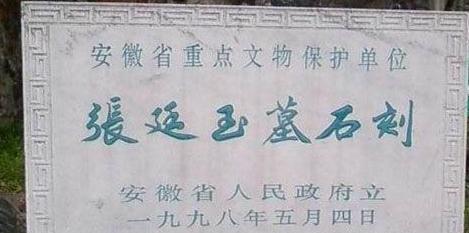 安徽省重点文物保护单位
張廷玉墓石刻
安徽省人民政府立
一九九八年五月四日